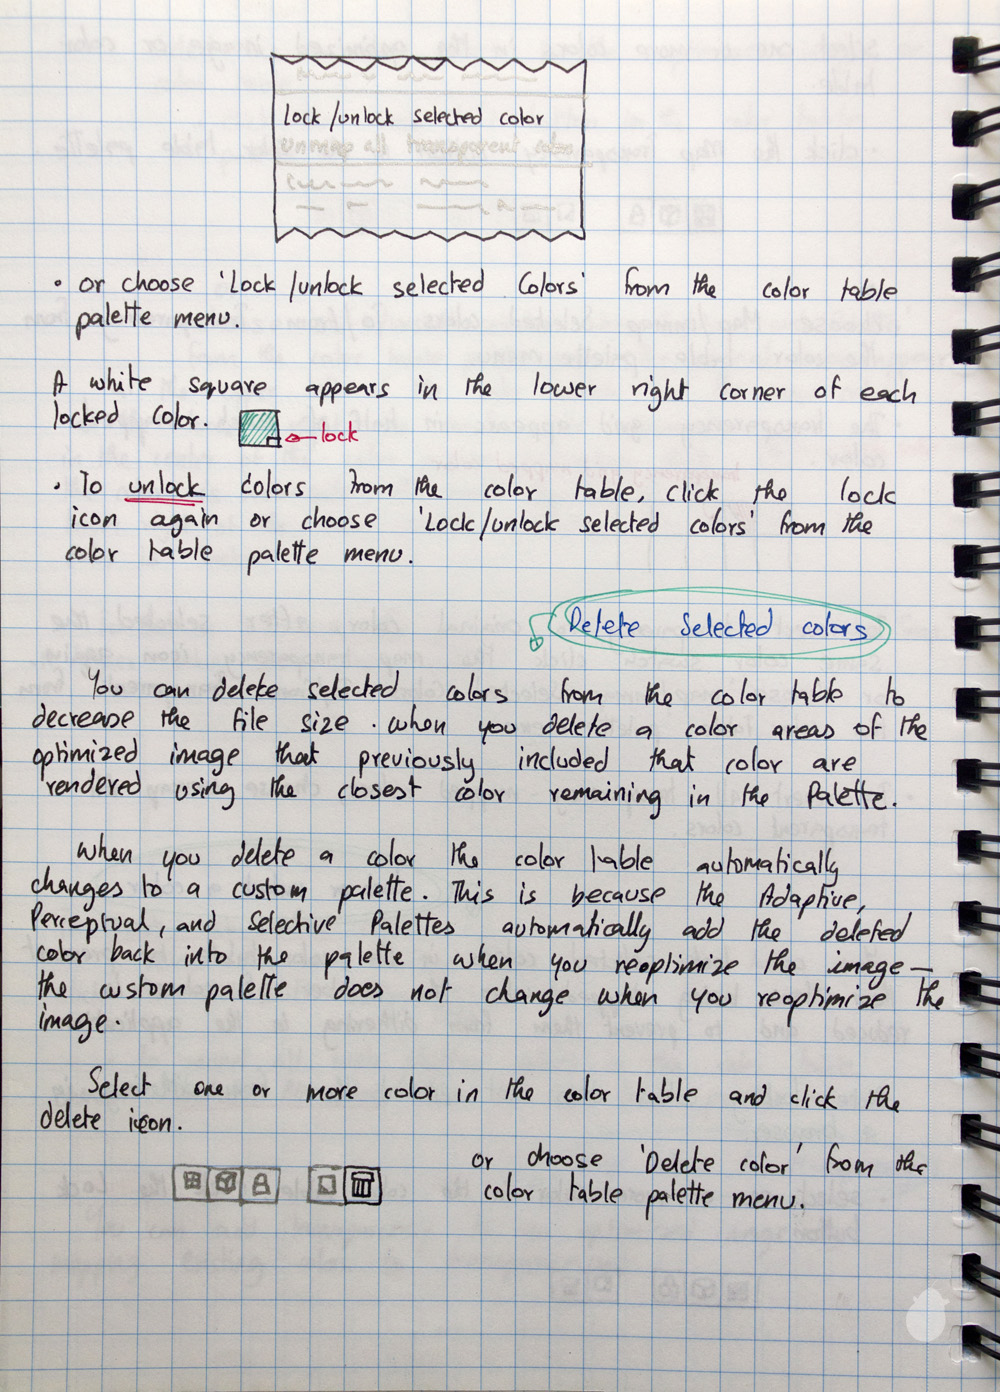 Lock/unlock selected color
Unmap all transparent colors
• or choose 'Lock/unlock selected Colors' from the color table
palette menu.
A white square appears in the lower right corner of each
locked color.
lock
• To unlock colors from the color table, click the lock
icon again or choose 'Lock/unlock selected colors' from the
color table palette menu.
Delete Selected colors
You can delete selected colors from the color table to
decrease the file size. when you delete a color areas of the
optimized image that previously included that color are
rendered using the closest color remaining in the Palette.
when you delete a color the color table automatically
changes to a custom palette. This is because the Adaptive,
Perceptual, and Selective Palettes automatically add the deleted
color back into the palette when you reoptimize the image —
the custom palette does not change when you reoptimize the
image.
Select one or more color in the color table and click the
delete icon.
or choose 'Delete color' from the
color table palette menu.